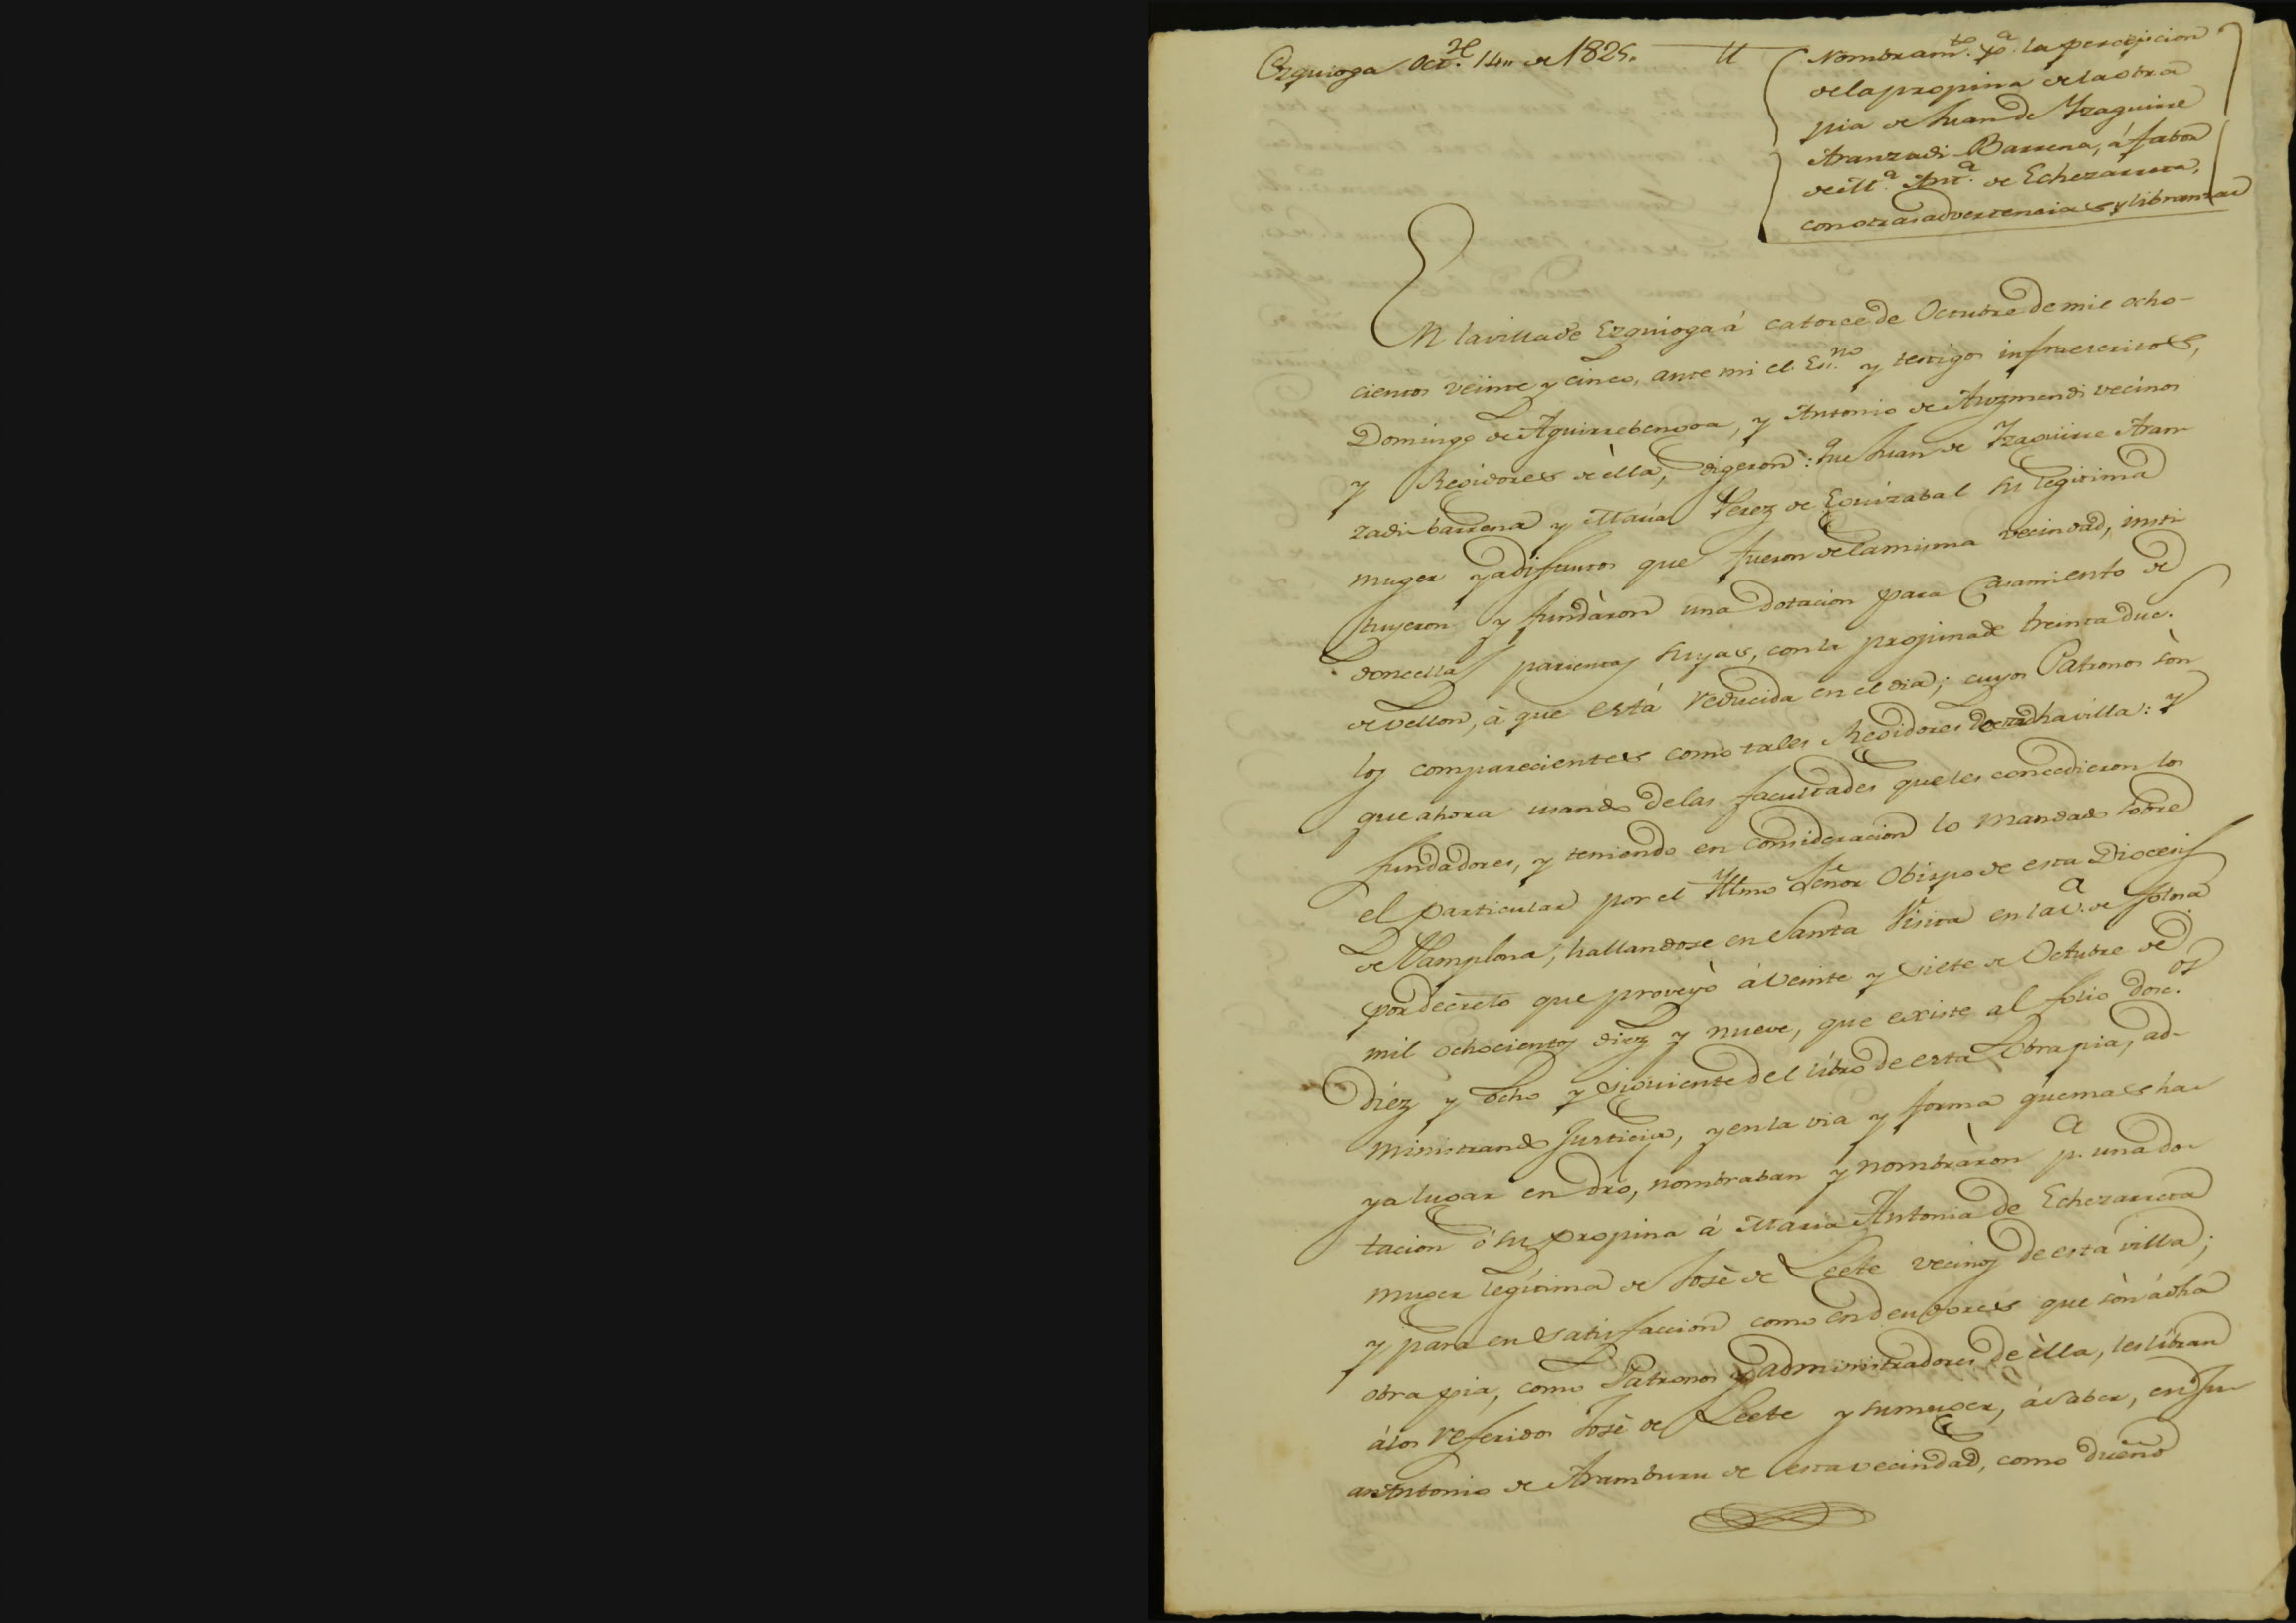 Ezquioga Oct.re 14,, de 1825.
Nombram.to p.a la percepcion
de la propina de la obra
pia de Juan de Yzaguirre
Aranzadi-Barrena, á fabor
de M.a Ant.a de Echezarreta,
con otras advertencias y libranzas
En la villa de Ezquioga á catorce de Octubre de mil ocho-
cientos veinte y cinco, ante mi el Es.no y testigos infraescritos,
Domingo de Aguirrebengoa, y Antonio de Auzmendi vecinos
y Regidores de ella, digeron: que Juan de Yzaguirre Aran-
zadi-barrena y Maria Perez de Eguizabal su legitima
muger ya difuntos que fueron de la misma vecindad, insti
tuyeron y fundàron una dotacion para Casamiento de
doncellas parientas suyas, con la propina de treinta duc.s
de vellon, à que está reducida en el dia; cuyos Patronos sòn
los comparecientes como tales Regidores de dicha villa: y
que ahora usando de las facultades que les concedieron los
fundadores, y teniendo en consideracion lo mandado sobre
el particular por el Yltmo Señor Obispo de esta Diocesis
de Pamplona, hallandose en Santa Visita en la V.a de
por decreto que proveyò á veinte y siete de Octubre de
mil ochocientos diez y nueve, que existe al folio doc.os
Diez y ocho y siguiente del libro de esta Obra pia, ad-
ministrando Justicia, y en la via y forma que mas ha-
ya lugar en dro, nombraban y nombràron p.a una do-
tacion ó su propina á Maria Antonia de Echezarreta
muger legitima de Josè de Leete vecinos de esta villa;
y para en satisfaccion como en deudores que sòn á dha
obra pia, como Patronos y administradores de èlla, les libran
á los referidos Josè de Leete y su muger, á saber, en Ju-
an Antonio de Aramburu de esta vecindad, como dueño